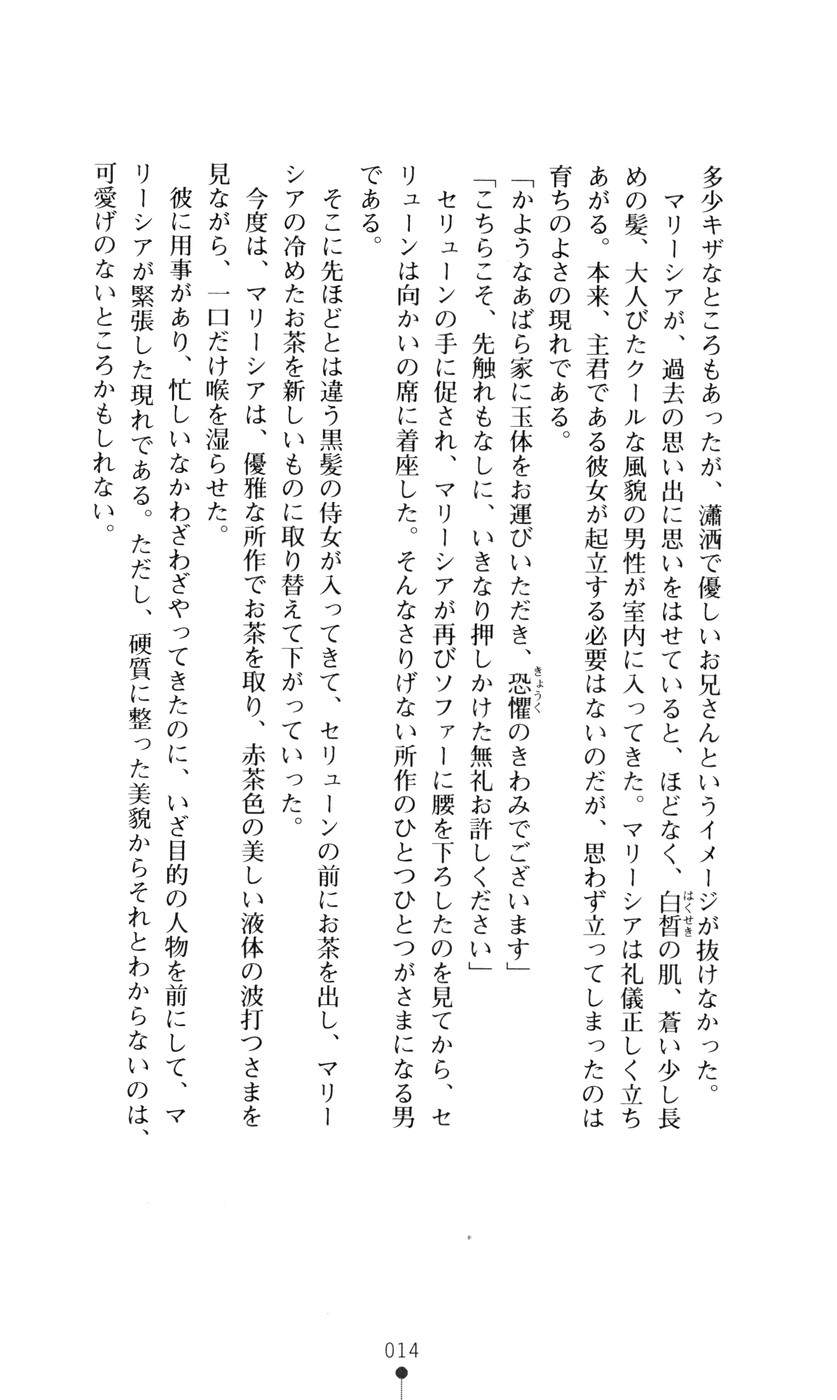 多少キザなところもあったが、瀟洒で優しいお兄さんというイメージが抜けなかった。
マリーシアが、過去の思い出に思いをはせていると、ほどなく、白皙の肌、蒼い少し長
はくせき
めの髪、大人びたクールな風貌の男性が室内に入ってきた。マリーシアは礼儀正しく立ち
あがる。本来、主君である彼女が起立する必要はないのだが、思わず立ってしまったのは
育ちのよさの現れである。
「かようなあばら家に玉体をお運びいただき、恐懼のきわみでございます」
きょうく
「こちらこそ、先触れもなしに、いきなり押しかけた無礼お許しください」
セリューンの手に促され、マリーシアが再びソファーに腰を下ろしたのを見てから、セ
リューンは向かいの席に着座した。そんなさりげない所作のひとつひとつがさまになる男
である。
そこに先ほどとは違う黒髪の侍女が入ってきて、セリューンの前にお茶を出し、マリー
シアの冷めたお茶を新しいものに取り替えて下がっていった。
今度は、マリーシアは、優雅な所作でお茶を取り、赤茶色の美しい液体の波打つさまを
見ながら、一口だけ喉を湿らせた。
彼に用事があり、忙しいなかわざわざやってきたのに、いざ目的の人物を前にして、マ
リーシアが緊張した現れである。ただし、硬質に整った美貌からそれとわからないのは、
可愛げのないところかもしれない。
014